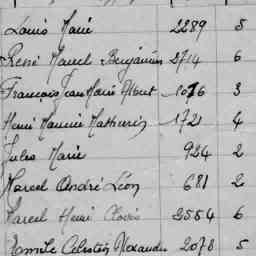 Louis Marie 2289 5
René Marcel Benjamin 2714 6
François Jean Marie Albert 1076 3
Henri Maurice Mathurin 1721 4
Jules Marie 924 2
Marcel André Léon 681 2
Marcel Henri Clovis 2554 6
Camille Célestin Alexandre 2078 5